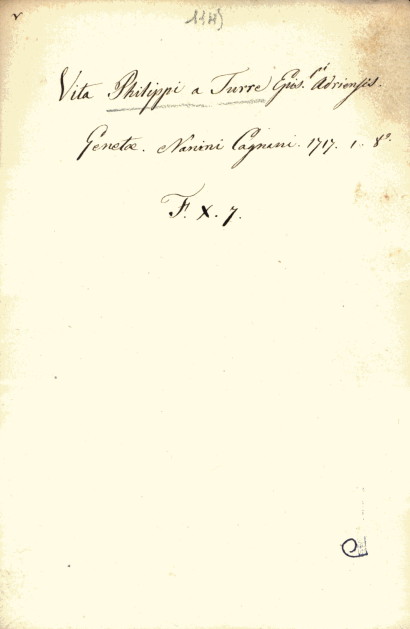 114)
Vita Philippi a Turre Epis.pi Adriensis.
Genetæ. Nanini Cagnani. 1717. 1. 8º.
F. X. 7.